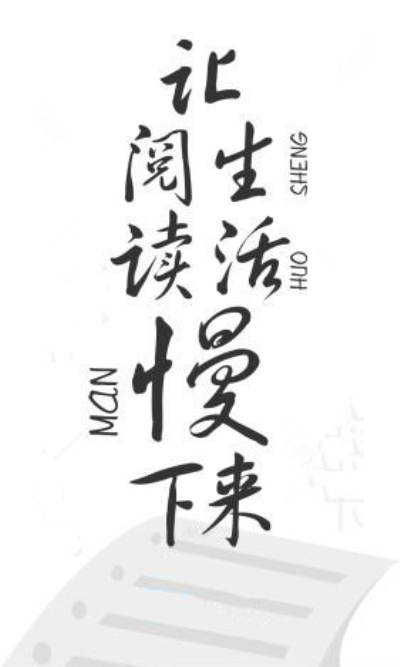 让
生活
SHENG
HUO
阅读
慢
MAN
下来